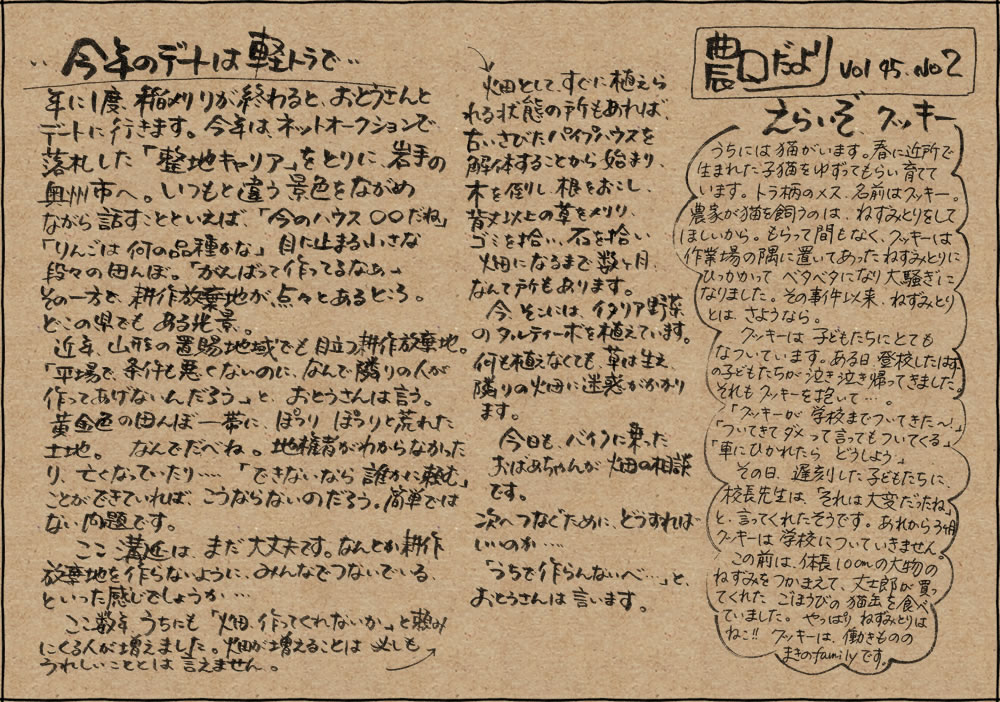 農口だより Vol 45. No 2
えらいぞ、クッキー
うちには猫がいます。春に近所で
生まれた子猫をゆずってもらい育てて
います。トラ柄のメス、名前はクッキー。
農家が猫を飼うのは、ねずみとりをして
ほしいから。もらって間もなく、クッキーは
作業場の隅に置いてあったねずみとりに
ひっかかって ベタベタになり大騒ぎに
なりました。その事件以来、ねずみとり
とは、さようなら。
クッキーは 子どもたちにとても
なついています。ある日 登校したはず
の子どもたちが泣き泣き帰ってきました。
それも クッキーを抱いて…。
「クッキーが 学校までついてきた~!」
「ついてきてダメって言ってもついてくる」
「車にひかれたら どうしよう」
その日、遅刻した子どもたちに、
校長先生は、「それは大変だったね」
と、言ってくれたそうです。あれから3ヶ月
クッキーは 学校についていきません。
この前は、体長10cmの大物の
ねずみをつかまえて、丈士郎が買っ
てくれた ごほうびの猫缶を食べ
ていました。やっぱり ねずみとりは
ねこ!! クッキーは、働きものの
まきのfamilyです。
‥今年のデートは軽トラで‥
年に1度、稲刈りが終わると、おとうさんと
デートに行きます。今年は、ネットオークションで
落札した「整地キャリア」をとりに、岩手の
奥州市へ。いつもと違う景色をながめ
ながら話すことといえば、「今のハウス〇〇だね」
「りんごは何の品種かな」目に止まる小さな
段々の田んぼ。「がんばって作ってるなぁ」
その一方で、耕作放棄地が点々とあるところ。
どこの県でも ある光景。
近年、山形の置賜地域でも目立つ耕作放棄地。
「平場で、条件も悪くないのに、なんで隣りの人が
作ってあげないんだろう」と、おとうさんは言う。
黄金色の田んぼ一帯に、ぽつり ぽつりと荒れた
土地。 なんでだべね。地権者がわからなかった
り、亡くなっていたり…「できないなら 誰かに頼む」
ことができていれば、こうならないのだろう。簡単では
ない問題です。
ここ 溝延は、まだ大丈夫です。なんとか耕作
放棄地を作らないように、みんなでつないでいる
といった感じでしょうか…
ここ数年、うちにも「畑、作ってくれないか」と頼み
にくる人が増えました。畑が増えることは 必しも
うれしいこととは 言えません。
畑としてすぐに植えら
れる状態の所もあれば、
古いさびたパイプハウスを
解体することから始まり、
木を倒し、根をおこし、
背丈以上の草をメリリ、
ゴミを拾い、石を拾い
畑になるまで数ヶ月、
なんて所もあります。
今、そこには、イタリア野菜
のタルティーボを植えています。
何も植えなくても、草は生え、
隣りの畑に迷惑がかかり
ます。
今日も、バイクに乗った
おばあちゃんが 畑の相談
です。
次へつなぐために、どうすれば
いいのか…
「うちで作らんないべ…」と、
おとうさんは言います。